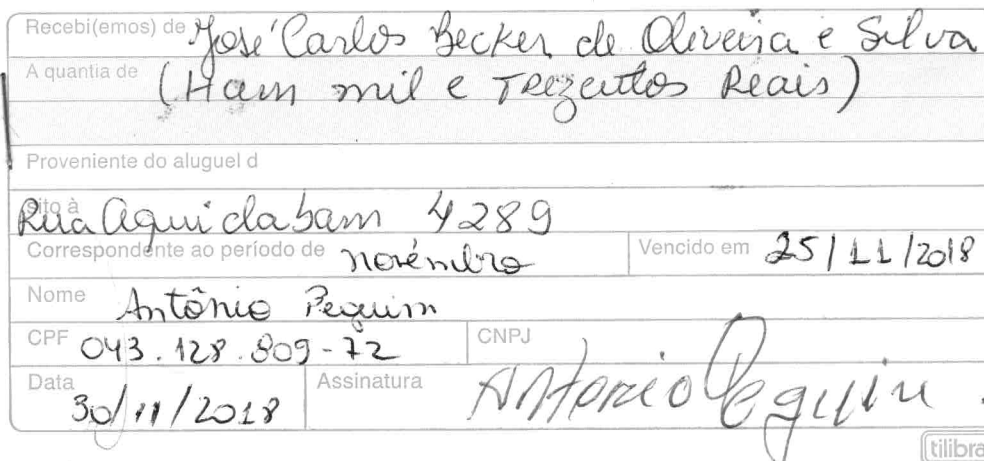 Recebi(emos) de José Carlos Becker de Oliveira e Silva
A quantia de (Hum mil e Trezentos Reais)
Proveniente do aluguel d
sito à
Rua Aquidabam 4289
Correspondente ao período de novémbro Vencido em 25/11/2018
Nome Antônio Pequim
CPF 043.128.809-72 CNPJ
Data 30/11/2018 Assinatura Antonio Pequim
tilibra